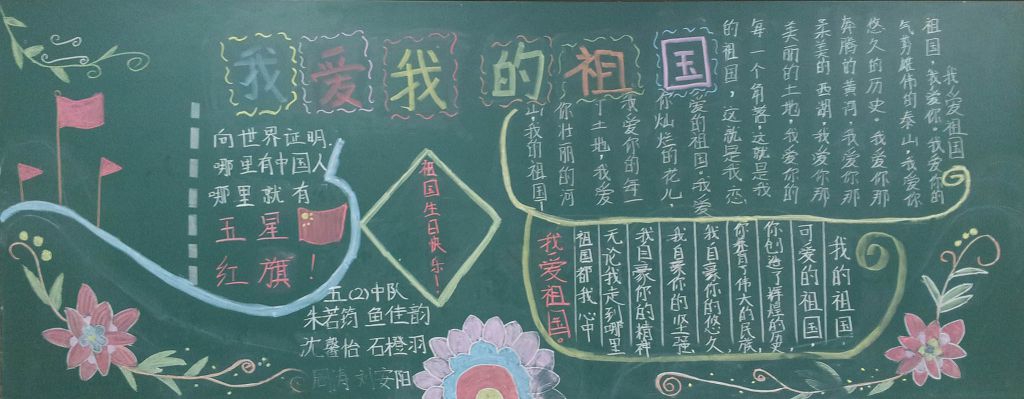 我爱我的祖国
向世界证明.
哪里有中国人
哪里就有
五星
红旗!
祖国生日快乐!
五(2)中队
朱若筠 鱼佳韵
沈馨怡 石橙羽
周涛 刘安阳
我爱祖国
祖国,我爱你。我爱你的
气势雄伟的泰山,我爱你
悠久的历史。我爱你那
奔腾的黄河,我爱你那
柔美的西湖,我爱你那
美丽的土地,我爱你的
每一个角落,这就是我
的祖国,这就是我恋
爱的祖国。我爱
你灿烂的花儿
我爱你的每一
寸土地,我爱
你壮丽的河
山,我的祖国!
我的祖国
可爱的祖国,
你创造了辉煌的历史,
你养育了伟大的民族,
我自豪你的悠久,
我自豪你的坚强
我自豪你的精神
无论我走到哪里
祖国都我心中
我爱祖国。